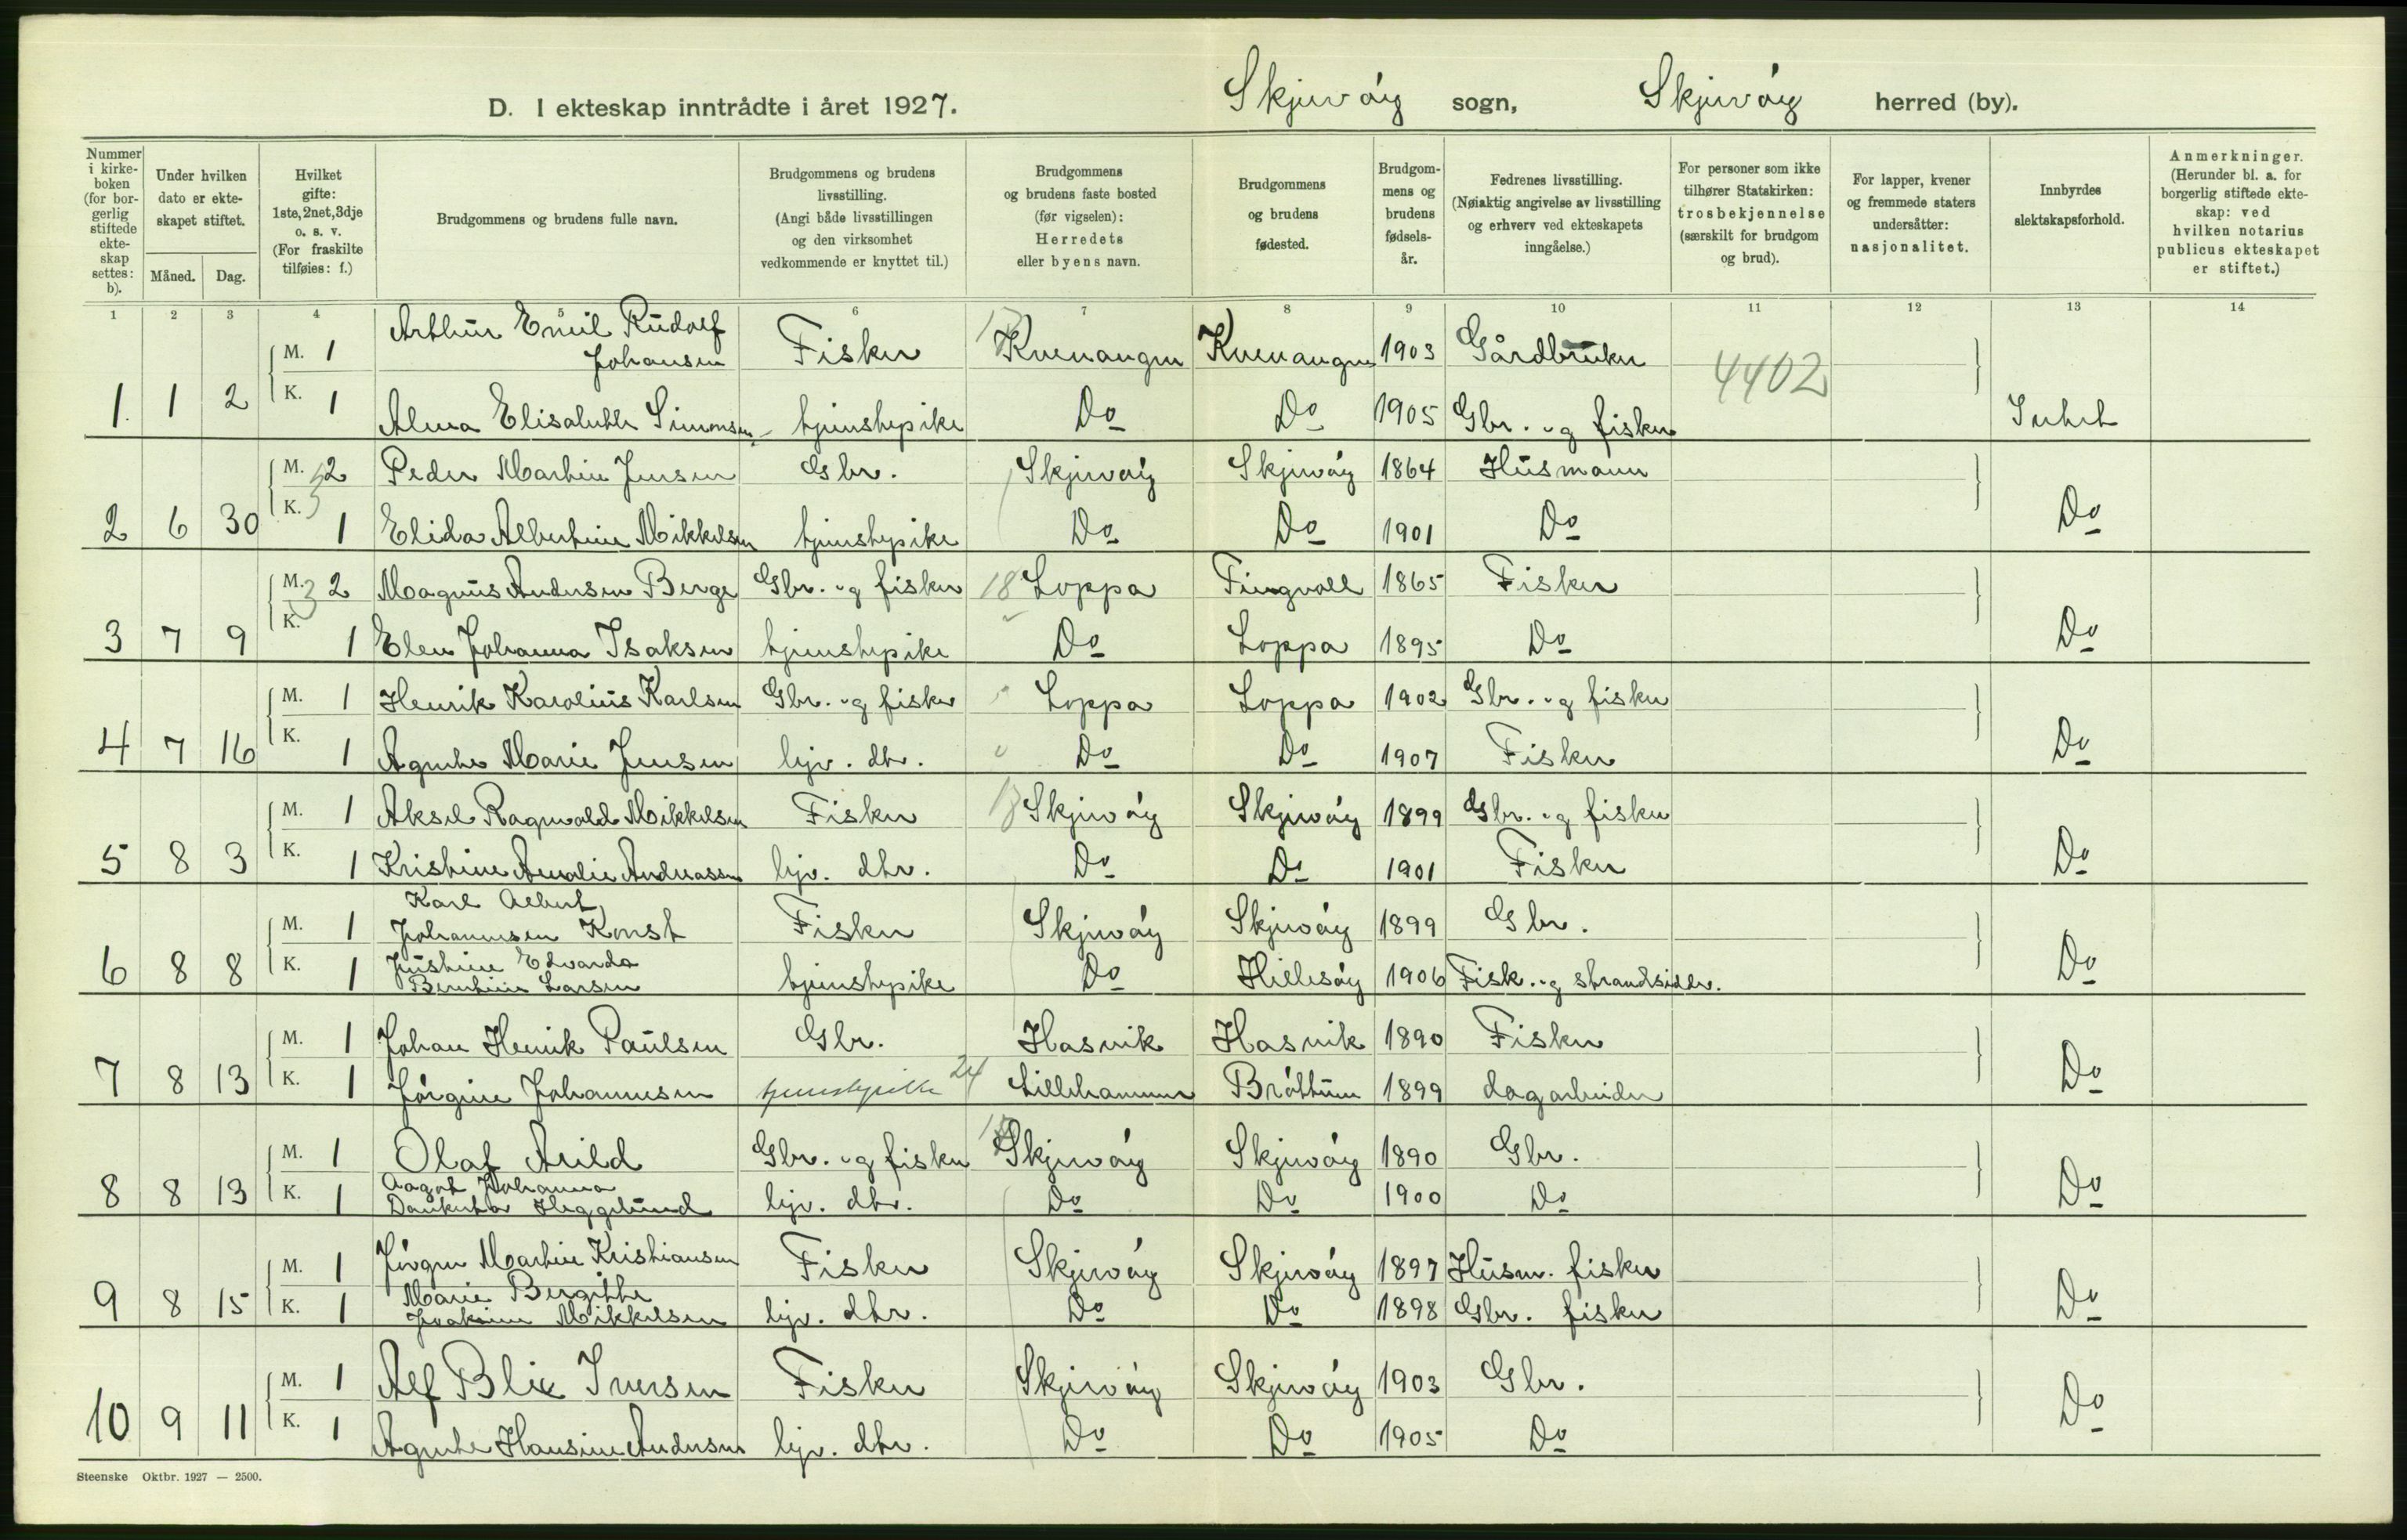 D. I ekteskap inntrådte i året 1927. Skjervöy sogn, Skjervöy herred (by).
Nummer i kirke-boken (for bor-gerlig stiftede ekte-skap settes: b).
Under hvilken dato er ekte-skapet stiftet.
Måned. Dag.
Hvilket gifte: 1ste, 2net, 3dje o. s. v. (For fraskilte tilføies: f.)
Brudgommens og brudens fulle navn.
Brudgommens og brudens livsstilling. (Angi både livsstillingen og den virksomhet vedkommende er knyttet til.)
Brudgommens og brudens faste bosted (før vigselen): Herredets eller byens navn.
Brudgommens og brudens fødested.
Brudgom-mens og brudens fødsels-år.
Fedrenes livsstilling. (Nøiaktig angivelse av livsstilling og erhverv ved ekteskapets inngåelse.)
For personer som ikke tilhører Statskirken: trosbekjennelse (særskilt for brudgom og brud).
For lapper, kvener og fremmede staters undersåtter: nasjonalitet.
Innbyrdes slektskapsforhold.
Anmerkninger. (Herunder bl. a. for borgerlig stiftede ekte-skap: ved hvilken notarius publicus ekteskapet er stiftet.)
1 2 3 4 5 6 7 8 9 10 11 12 13 14
M. 1 Arthur Emil Rudolf Johansen Fisker Kvenangen Kvenangen 1903 Gårdbruker 4402
1. 1 2 K. 1 Alma Elisabeth Simonsen tjenestepike Do Do 1905 Gbr. og fisker Intet
M. 2 Peder Martin Jensen Gbr. Skjervöy Skjervöy 1864 Husmann
2 6 30 K. 1 Elida Albertine Mikkelsen tjenestepike Do Do 1901 Do Do
M. 2 Magnus Andersen Berge Gbr. og fisker 18 Loppa Tingvoll 1865 Fisker
3 7 9 K. 1 Elen Johanna Isaksen tjenestepike Do Loppa 1895 Do Do
M. 1 Henrik Karolius Karlsen Gbr. og fisker Loppa Loppa 1902 Gbr. og fisker
4 7 16 K. 1 Agnete Marie Jensen hjv. dtr. Do Do 1907 Fisker Do
M. 1 Aksel Ragnvald Mikkelsen Fisker Skjervöy Skjervöy 1899 Gbr. og fisker
5 8 3 K. 1 Kristine Amalie Andreassen hjv. dtr. Do Do 1901 Fisker Do
M. 1 Karl Albert Johannesen Konst Fisker Skjervöy Skjervöy 1899 Gbr.
6 8 8 K. 1 Justine Edvarda Berntine Larsen tjenestepike Do Hillesöy 1906 Fisk. og strandsidder. Do
M. 1 Johan Henrik Paulsen Gbr. Hasvik Hasvik 1890 Fisker
7 8 13 K. 1 Jörgine Johannesen tjenestepike 24 Lillehammer Bröttum 1899 dagarbeider Do
M. 1 Olaf Arild Gbr. og fisker Skjervöy Skjervöy 1890 Gbr.
8 8 13 K. 1 Aagot Johanna Dankerta Heggelund hjv. dtr. Do Do 1900 Do Do
M. 1 Jörgen Martin Kristiansen Fisker Skjervöy Skjervöy 1897 Husm. fisker
9 8 15 K. 1 Marie Bergitte Joakime Mikkelsen hjv. dtr. Do Do 1898 Gbr. fisker Do
M. 1 Alf Blix Iversen Fisker Skjervöy Skjervöy 1903 Gbr.
10 9 11 K. 1 Agnete Hansine Andersen hjv. dtr. Do Do 1905 Do Do
Steenske Oktbr. 1927 — 2500.